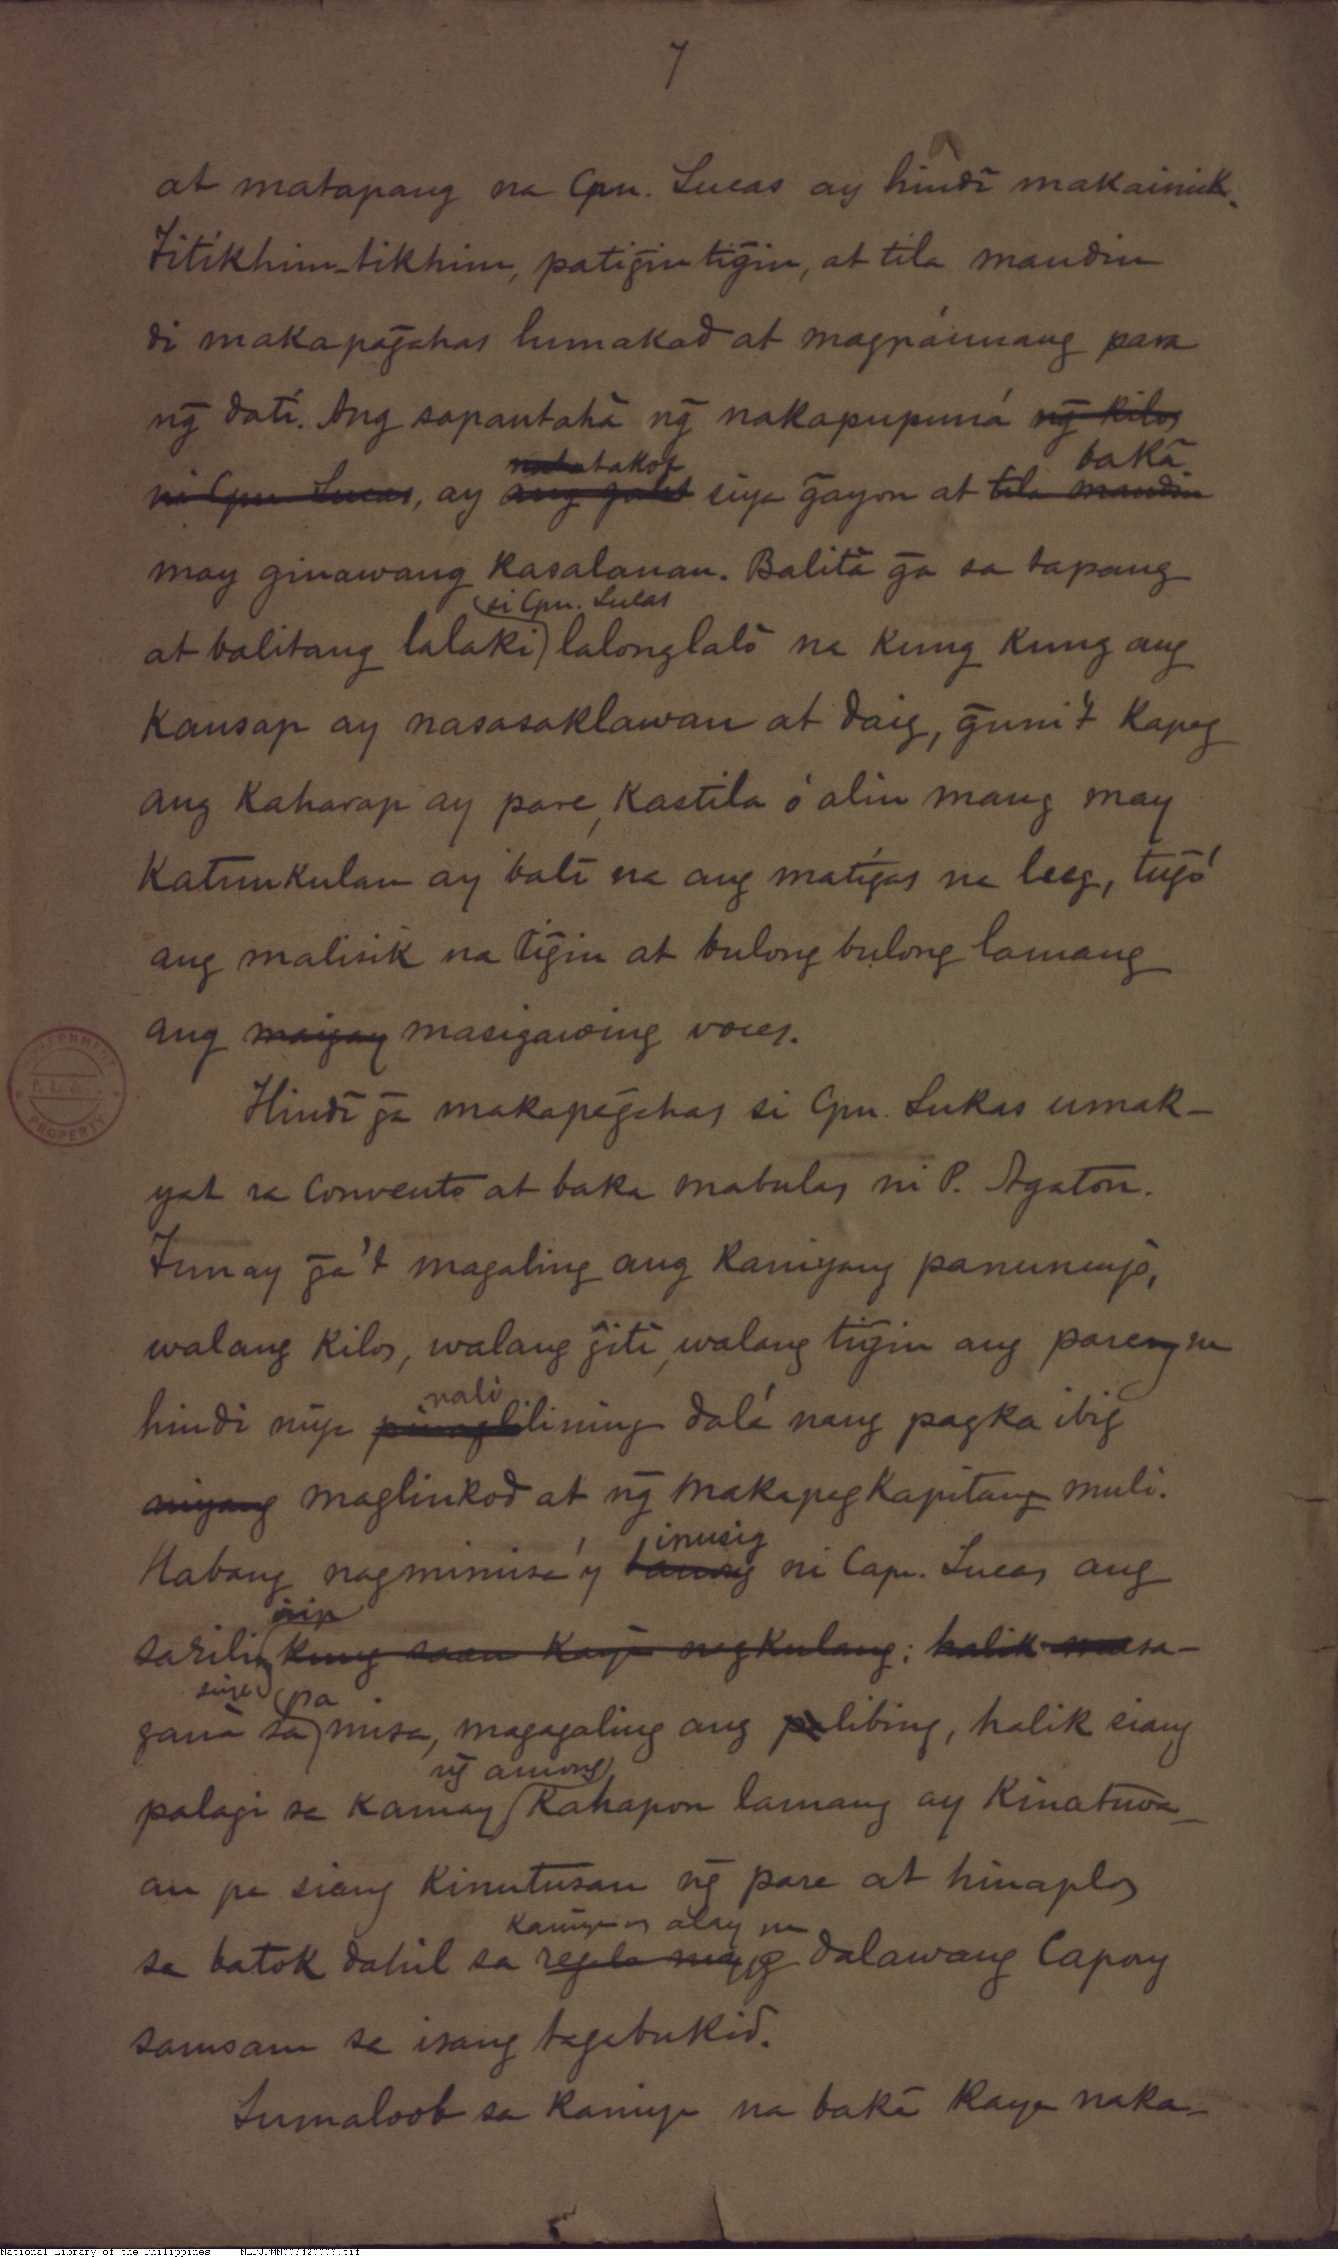 7
at matapang na Cpn. Lucas ay hindî makaimik.
Titikhim-tikhim, patig̃in tig̃in, at tila mandin
di makapag̃ahas lumakad at magpáunang para
ng̃ dati. Ang sapantahà ng̃ nakapupuná ng̃ kilos
ni Cpn Lucas, ay
natatakot
siya g̃ayon at tila mandin
bakâ
may ginawang kasalanan. Balità g̃a sa tapang
si Cpn. Lucas
at balitang lalaki lalonglalò na kung kung ang
kausap ay nasasaklawan at daig, g̃uni't kapag
ang kaharap ay pare, kastila ó alin mang may
katunkulan ay balî na ang matigas na leeg, tug̃ó
ang malisik na tig̃in at bulong bulong lamang
ang maigay masigawing voces.
Hindî g̃a makapag̃ahas si Cpn. Lukas umak-
yat sa convento at baka mabulas ni P. Agaton.
Tunay g̃a't magaling ang kaniyang panunuyò,
walang kilos, walang g̃itî, walang tig̃in ang pareng na
nali
hindi niya lining dalá nang pagka ibig
niyang maglinkod at ng̃ makapagkapitang muli.
inusig
Habang nagmimisa'y ni Cap. Lucas ang
isip
sarili kung saan kaya nagkulang: halik masa-
siya pa
ganà sa misa, magagaling ang libing, halik siang
ng̃ among
palagi sa kamay kahapon lamang ay kinatuwa-
an pa siang kinutusan ng̃ pare at hinaplos
kaniyang alay na
sa batok dahil sa regalo niya dalawang capong
samsam sa isang tagabukid.
Sumaloob sa kaniya na bakâ kaya naka-
GOVERNMENT
PROPERTY
National Library of the Philippines